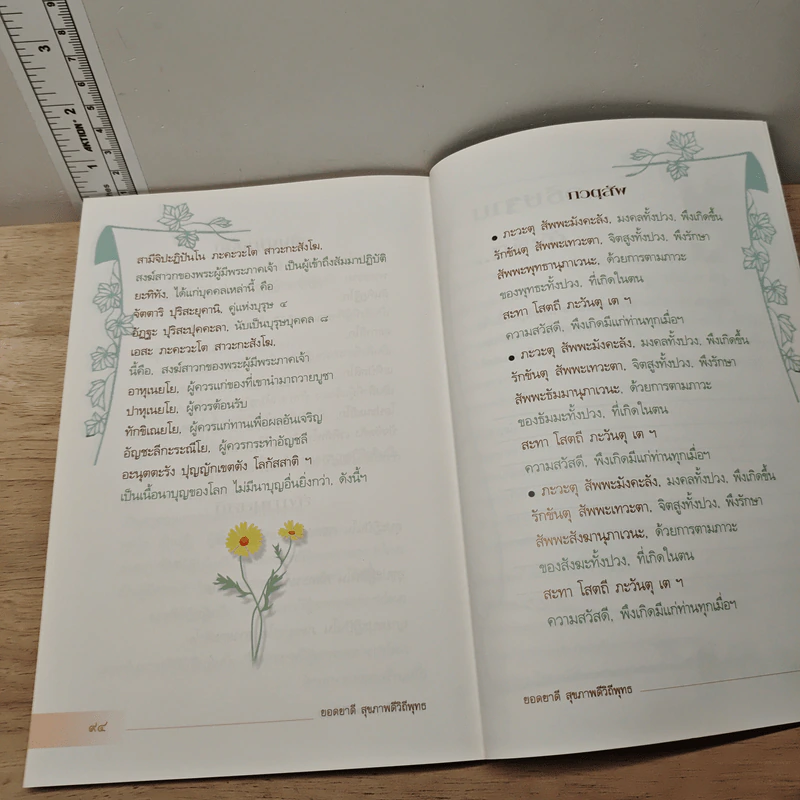 สามีจิปะฏิปันโน ภะคะวะโต สาวะกะสังโฆ,
สงฆ์สาวกของพระผู้มีพระภาคเจ้า เป็นผู้เข้าถึงสัมมาปฏิบัติ
ยะทิทัง, ได้แก่บุคคลเหล่านี้ คือ
จัตตาริ ปุริสะยุคานิ, คู่แห่งบุรุษ ๔
อัฏฐะ ปุริสะปุคคะลา, นับเป็นบุรุษบุคคล ๘
เอสะ ภะคะวะโต สาวะกะสังโฆ,
นี้คือ, สงฆ์สาวกของพระผู้มีพระภาคเจ้า
อาหุเนยโย, ผู้ควรแก่ของที่เขานำมาถวายบูชา
ปาหุเนยโย, ผู้ควรต้อนรับ
ทักขิเณยโย, ผู้ควรแก่ทานเพื่อผลอันเจริญ
อัญชะลีกะระณีโย, ผู้ควรกระทำอัญชลี
อะนุตตะรัง ปุญญักเขตตัง โลกัสสาติ ฯ
เป็นเนื้อนาบุญของโลก ไม่มีนาบุญอื่นยิ่งกว่า, ดังนี้ฯ
๙๔
ยอดยาดี สุขภาพดีวิถีพุทธ
• ภะวะตุ สัพพะมังคะลัง, มงคลทั้งปวง, พึงเกิดขึ้น
รักขันตุ สัพพะเทวะตา, จิตสูงทั้งปวง, พึงรักษา
สัพพะพุทธานุภาเวนะ, ด้วยการตามภาวะ
ของพุทธะทั้งปวง, ที่เกิดในตน
สะทา โสตถี ภะวันตุ เต ฯ
ความสวัสดี, พึงเกิดมีแก่ท่านทุกเมื่อฯ
• ภะวะตุ สัพพะมังคะลัง, มงคลทั้งปวง, พึงเกิดขึ้น
รักขันตุ สัพพะเทวะตา, จิตสูงทั้งปวง, พึงรักษา
สัพพะธัมมานุภาเวนะ, ด้วยการตามภาวะ
ของธัมมะทั้งปวง, ที่เกิดในตน
สะทา โสตถี ภะวันตุ เต ฯ
ความสวัสดี, พึงเกิดมีแก่ท่านทุกเมื่อฯ
• ภะวะตุ สัพพะมังคะลัง, มงคลทั้งปวง, พึงเกิดขึ้น
รักขันตุ สัพพะเทวะตา, จิตสูงทั้งปวง, พึงรักษา
สัพพะสังฆานุภาเวนะ, ด้วยการตามภาวะ
ของสังฆะทั้งปวง, ที่เกิดในตน
สะทา โสตถี ภะวันตุ เต ฯ
ความสวัสดี, พึงเกิดมีแก่ท่านทุกเมื่อฯ
ยอดยาดี สุขภาพดีวิถีพุทธ